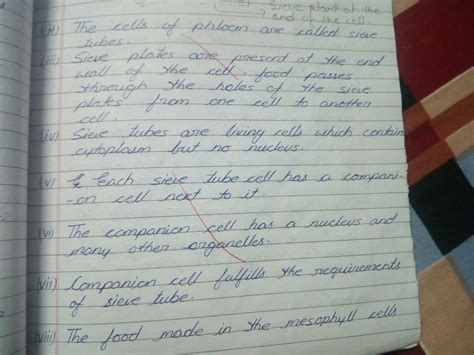 Sieve plant at the
end of the cell.
(ii) The cells of phloem are called sieve
tubes.
(iii) Sieve plates are present at the end
wall of the cell, food passes
through the holes of the sieve
plates from one cell to another
cell.
(iv) Sieve tubes are living cells which contain
cytoplasm but no nucleus.
(v) Each sieve tube cell has a compani-
-on cell next to it.
(vi) The companion cell has a nucleus and
many other organelles.
(vii) Companion cell fulfills the requirements
of sieve tube.
(viii) The food made in the mesophyll cells